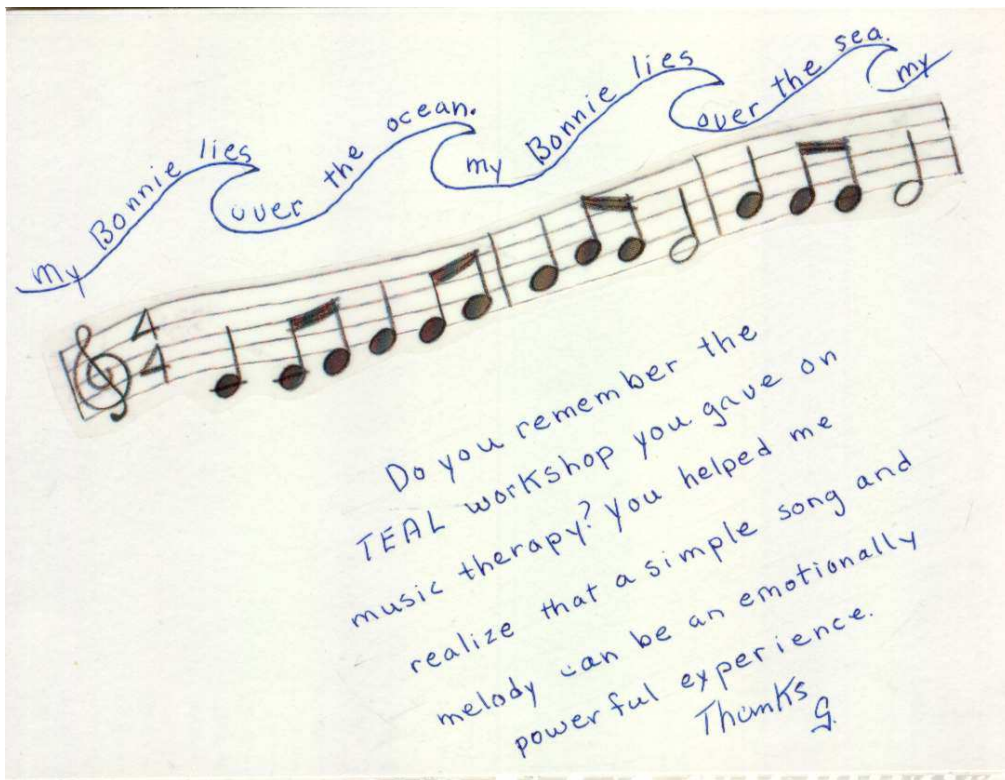 my Bonnie lies over the ocean. my Bonnie lies over the sea. my
4
4
Do you remember the
TEAL workshop you gave on
music therapy? You helped me
realize that a simple song and
melody can be an emotionally
powerful experience.
Thanks
G.